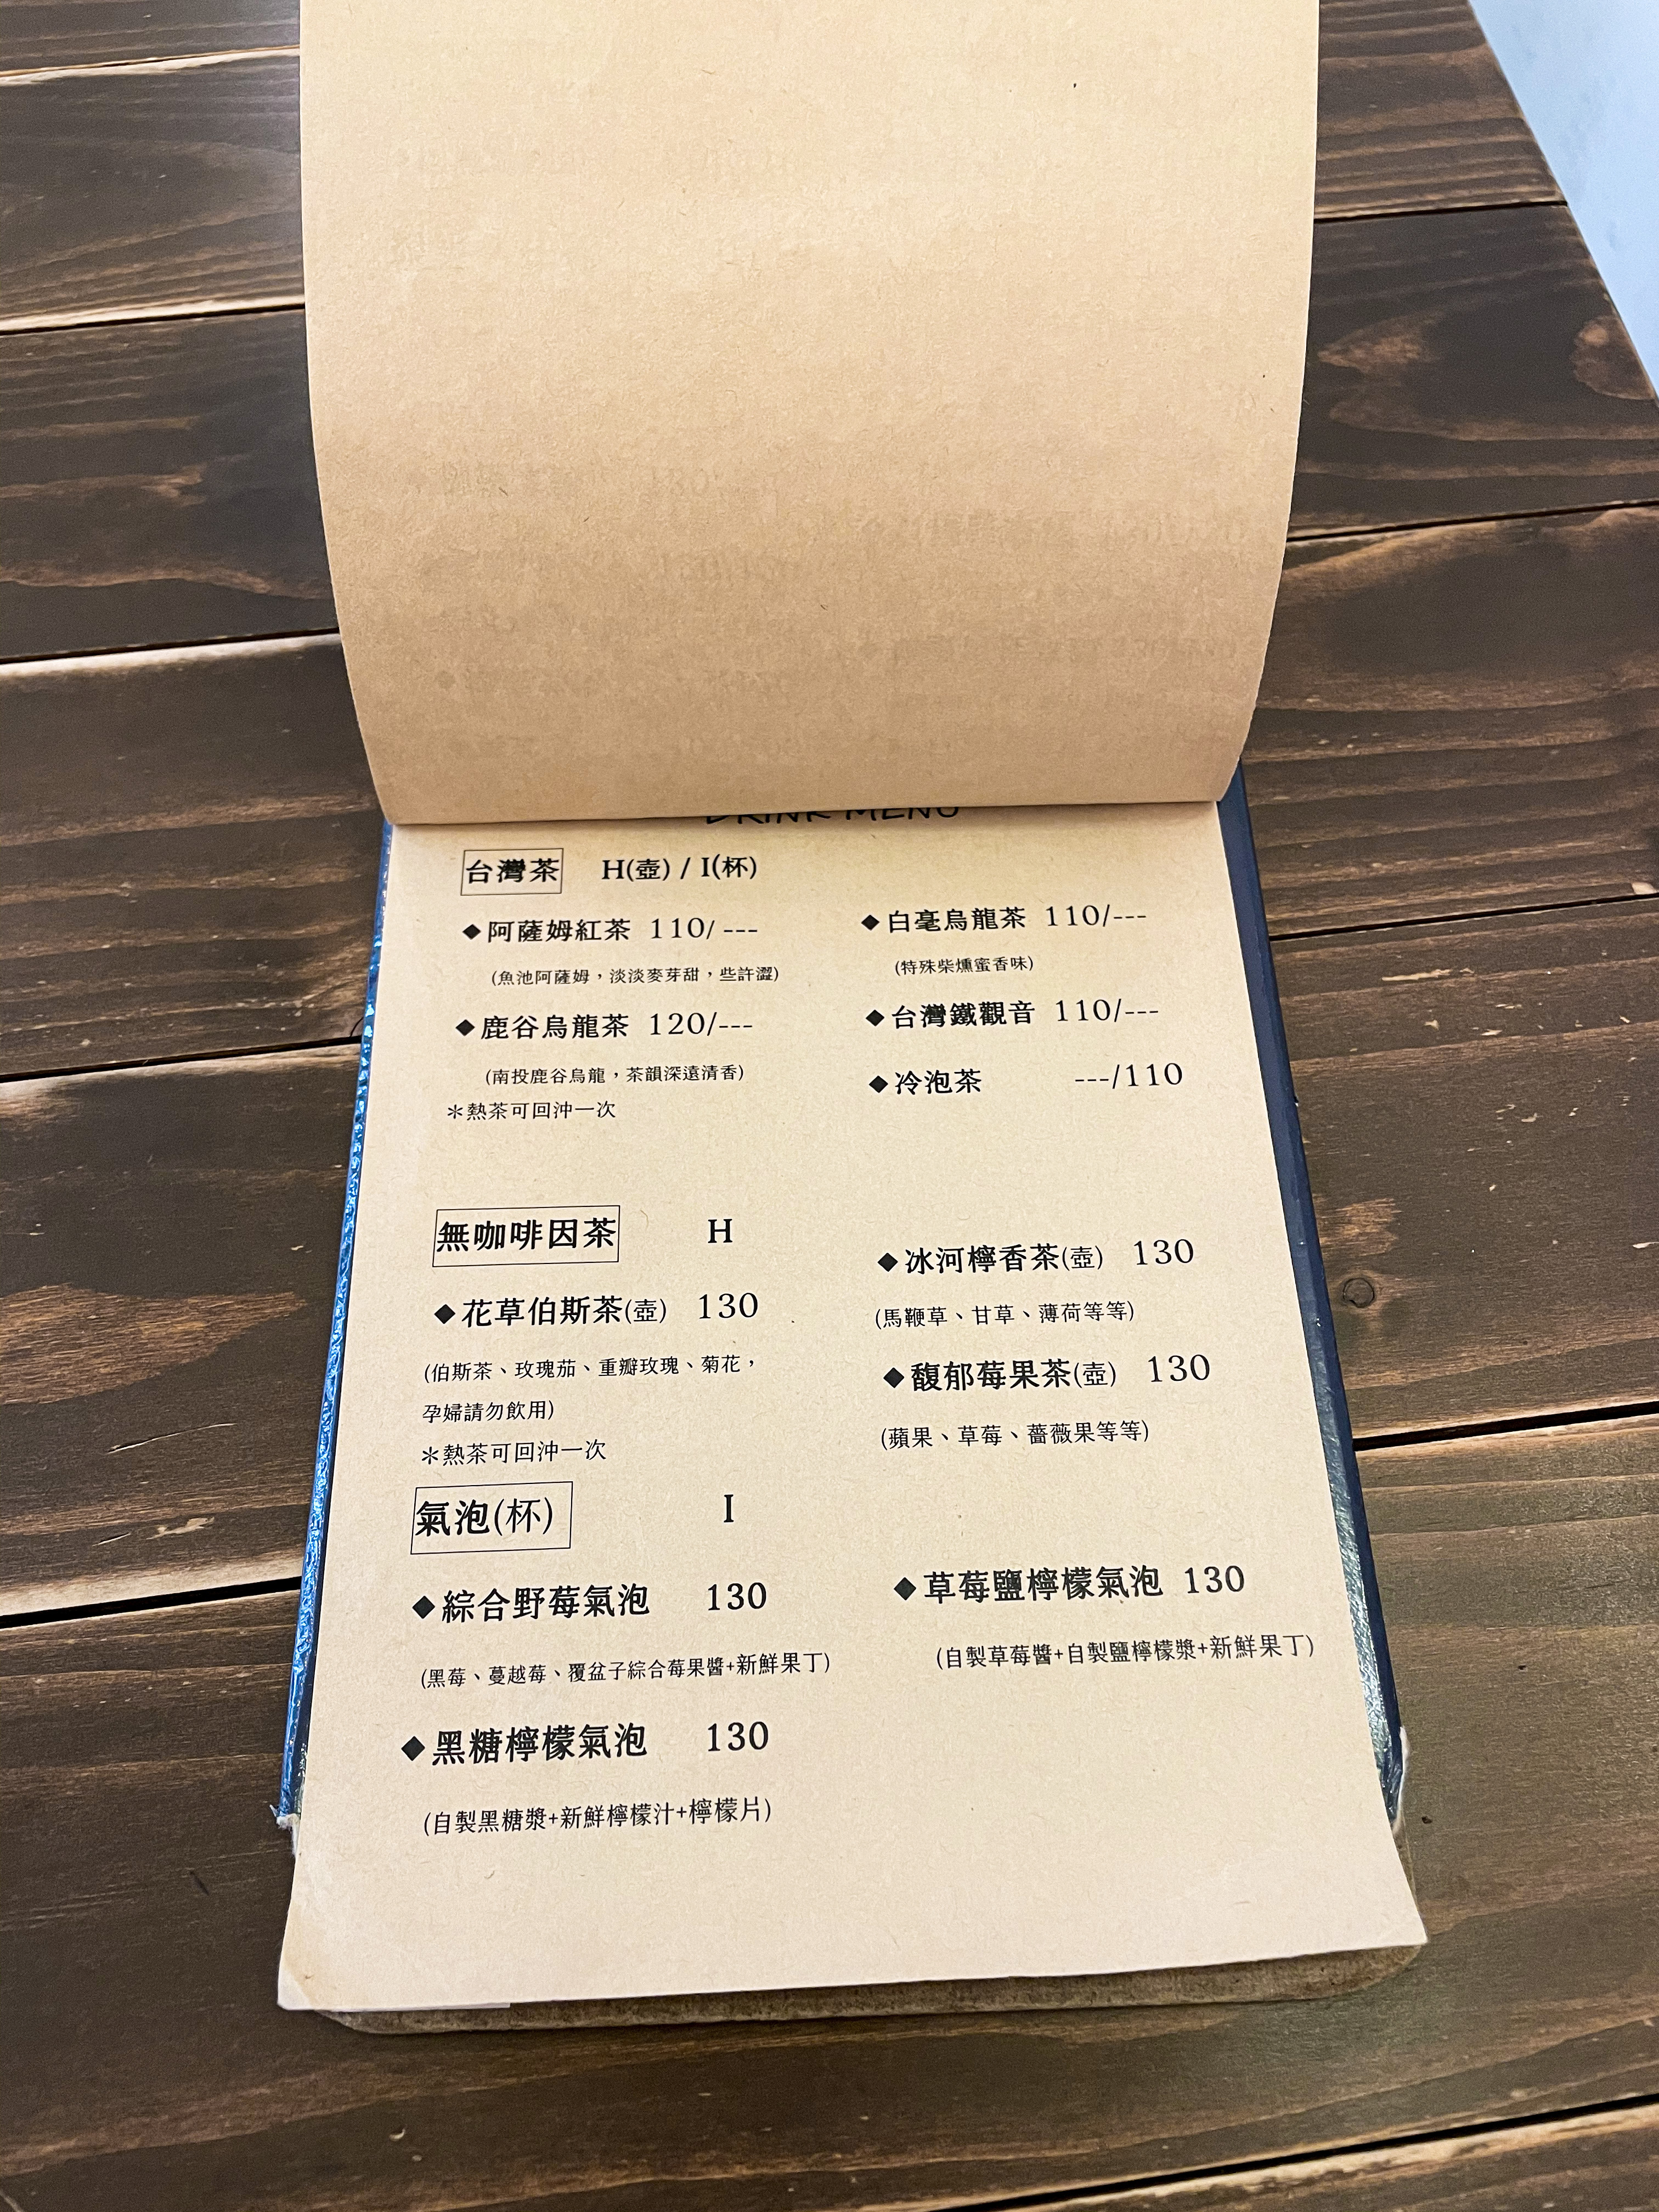 DRINK MENU
台灣茶 H(壺) / I(杯)
◆阿薩姆紅茶 110/ ---
(魚池阿薩姆，淡淡麥芽甜，些許澀)
◆鹿谷烏龍茶 120/---
(南投鹿谷烏龍，茶韻深遠清香)
＊熱茶可回沖一次
◆白毫烏龍茶 110/---
(特殊柴燻蜜香味)
◆台灣鐵觀音 110/---
◆冷泡茶 ---/110
無咖啡因茶 H
◆花草伯斯茶(壺) 130
(伯斯茶、玫瑰茄、重瓣玫瑰、菊花，
孕婦請勿飲用)
＊熱茶可回沖一次
◆冰河檸香茶(壺) 130
(馬鞭草、甘草、薄荷等等)
◆馥郁莓果茶(壺) 130
(蘋果、草莓、薔薇果等等)
氣泡(杯) I
◆綜合野莓氣泡 130
(黑莓、蔓越莓、覆盆子綜合莓果醬+新鮮果丁)
◆黑糖檸檬氣泡 130
(自製黑糖漿+新鮮檸檬汁+檸檬片)
◆草莓鹽檸檬氣泡 130
(自製草莓醬+自製鹽檸檬漿+新鮮果丁)